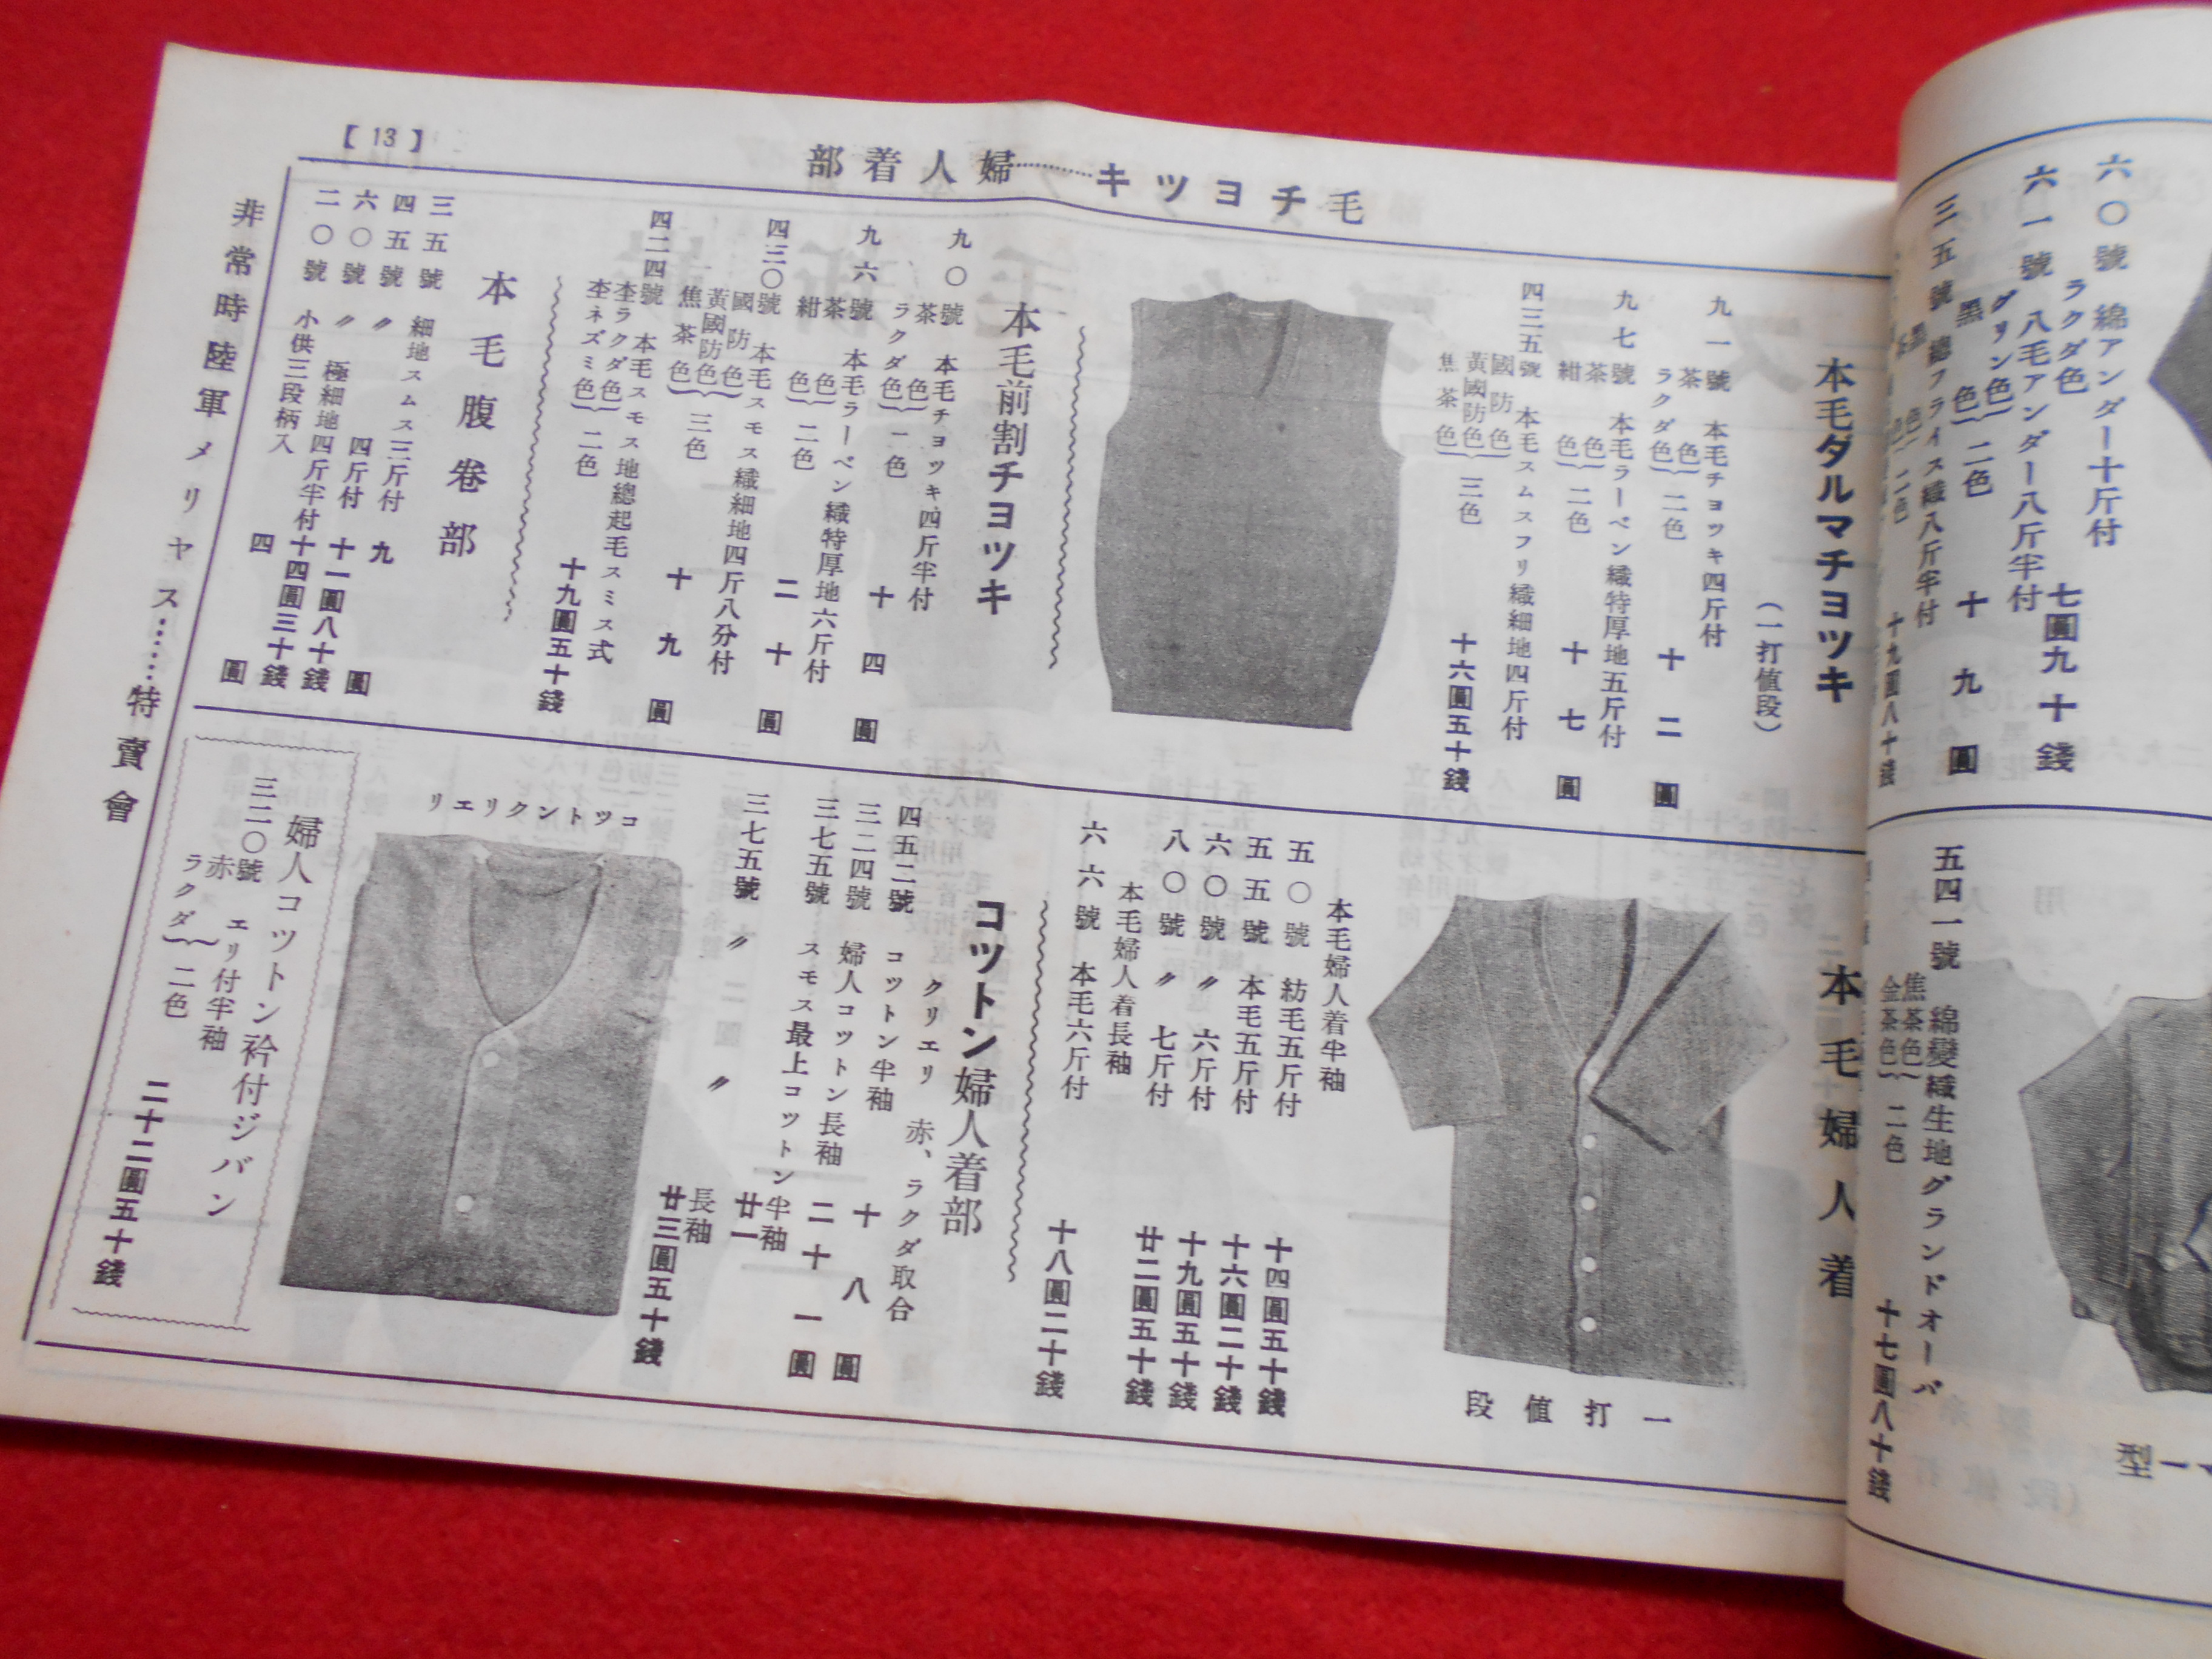 【13】
毛チヨツキ………婦人着部
本毛ダルマチヨツキ
(一打値段)
九一號 本毛チヨツキ四斤付
茶色
ラクダ色
二色
十二圓
九七號 本毛ラーベン織特厚地五斤付
茶色
紺色
二色
十七圓
四三五號 本毛スムスフリ織細地四斤付
國防色
黃國防色
焦茶色
三色
十六圓五十錢
本毛前割チヨツキ
九〇號 本毛チヨツキ四斤半付
茶色
ラクダ色
一色
十四圓
九六號 本毛ラーベン織特厚地六斤付
茶色
紺色
二色
二十圓
四三〇號 本毛スモス織細地四斤八分付
國防色
黃國防色
焦茶色
三色
十九圓
四二四號 本毛スモス地總起毛スミス式
杢ラクダ色
杢ネズミ色
二色
十九圓五十錢
本毛腹卷部
三五號 細地スムス三斤付 九圓
四五號 〃 四斤付 十一圓八十錢
六〇號 〃 極細地四斤半付 十四圓三十錢
二〇號 小供三段柄入 四圓
非常時陸軍メリヤス……特賣會
本毛婦人着
一打値段
本毛婦人着半袖
五〇號 紡毛五斤付 十四圓五十錢
五五號 本毛五斤付 十六圓二十錢
六〇號 〃 六斤付 十九圓五十錢
八〇號 〃 七斤付 廿二圓五十錢
本毛婦人着長袖
六六號 本毛六斤付 十八圓二十錢
コツトン婦人着部
クリエリ 赤、ラクダ取合
四五二號 コツトン半袖 十八圓
三二四號 婦人コツトン長袖 二十一圓
三七五號 スモス最上コツトン半袖 廿一圓
三七五號 〃 〃 長袖 廿三圓五十錢
コツトンクリエリ
婦人コツトン衿付ジバン
三二〇號 エリ付半袖
赤
ラクダ
二色
二十二圓五十錢
六〇號 綿アンダー十斤付
ラクダ色
七圓九十錢
六一號 八毛アンダー八斤半付
グリン色
黑色
二色
十九圓
三五號 總フライス織八斤半付
二色
十九圓八十錢
五四一號 綿變織生地グランドオーバ
焦茶色
金茶色
二色
十七圓八十錢